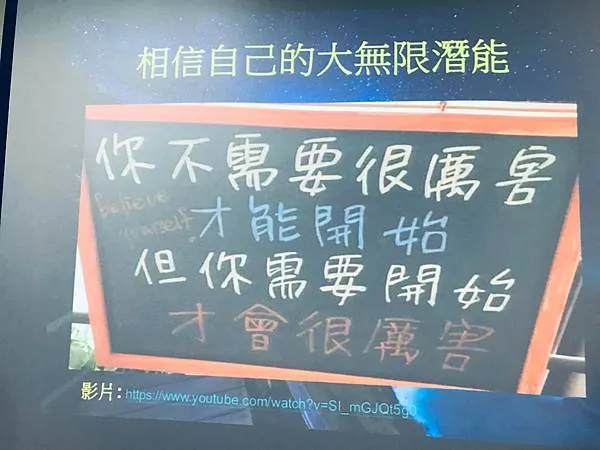 相信自己的大無限潛能
你不需要很厲害
believe
yourself
才能開始
但你需要開始
才會很厲害
影片：https://www.youtube.com/watch?v=SI_mGJQt5g0